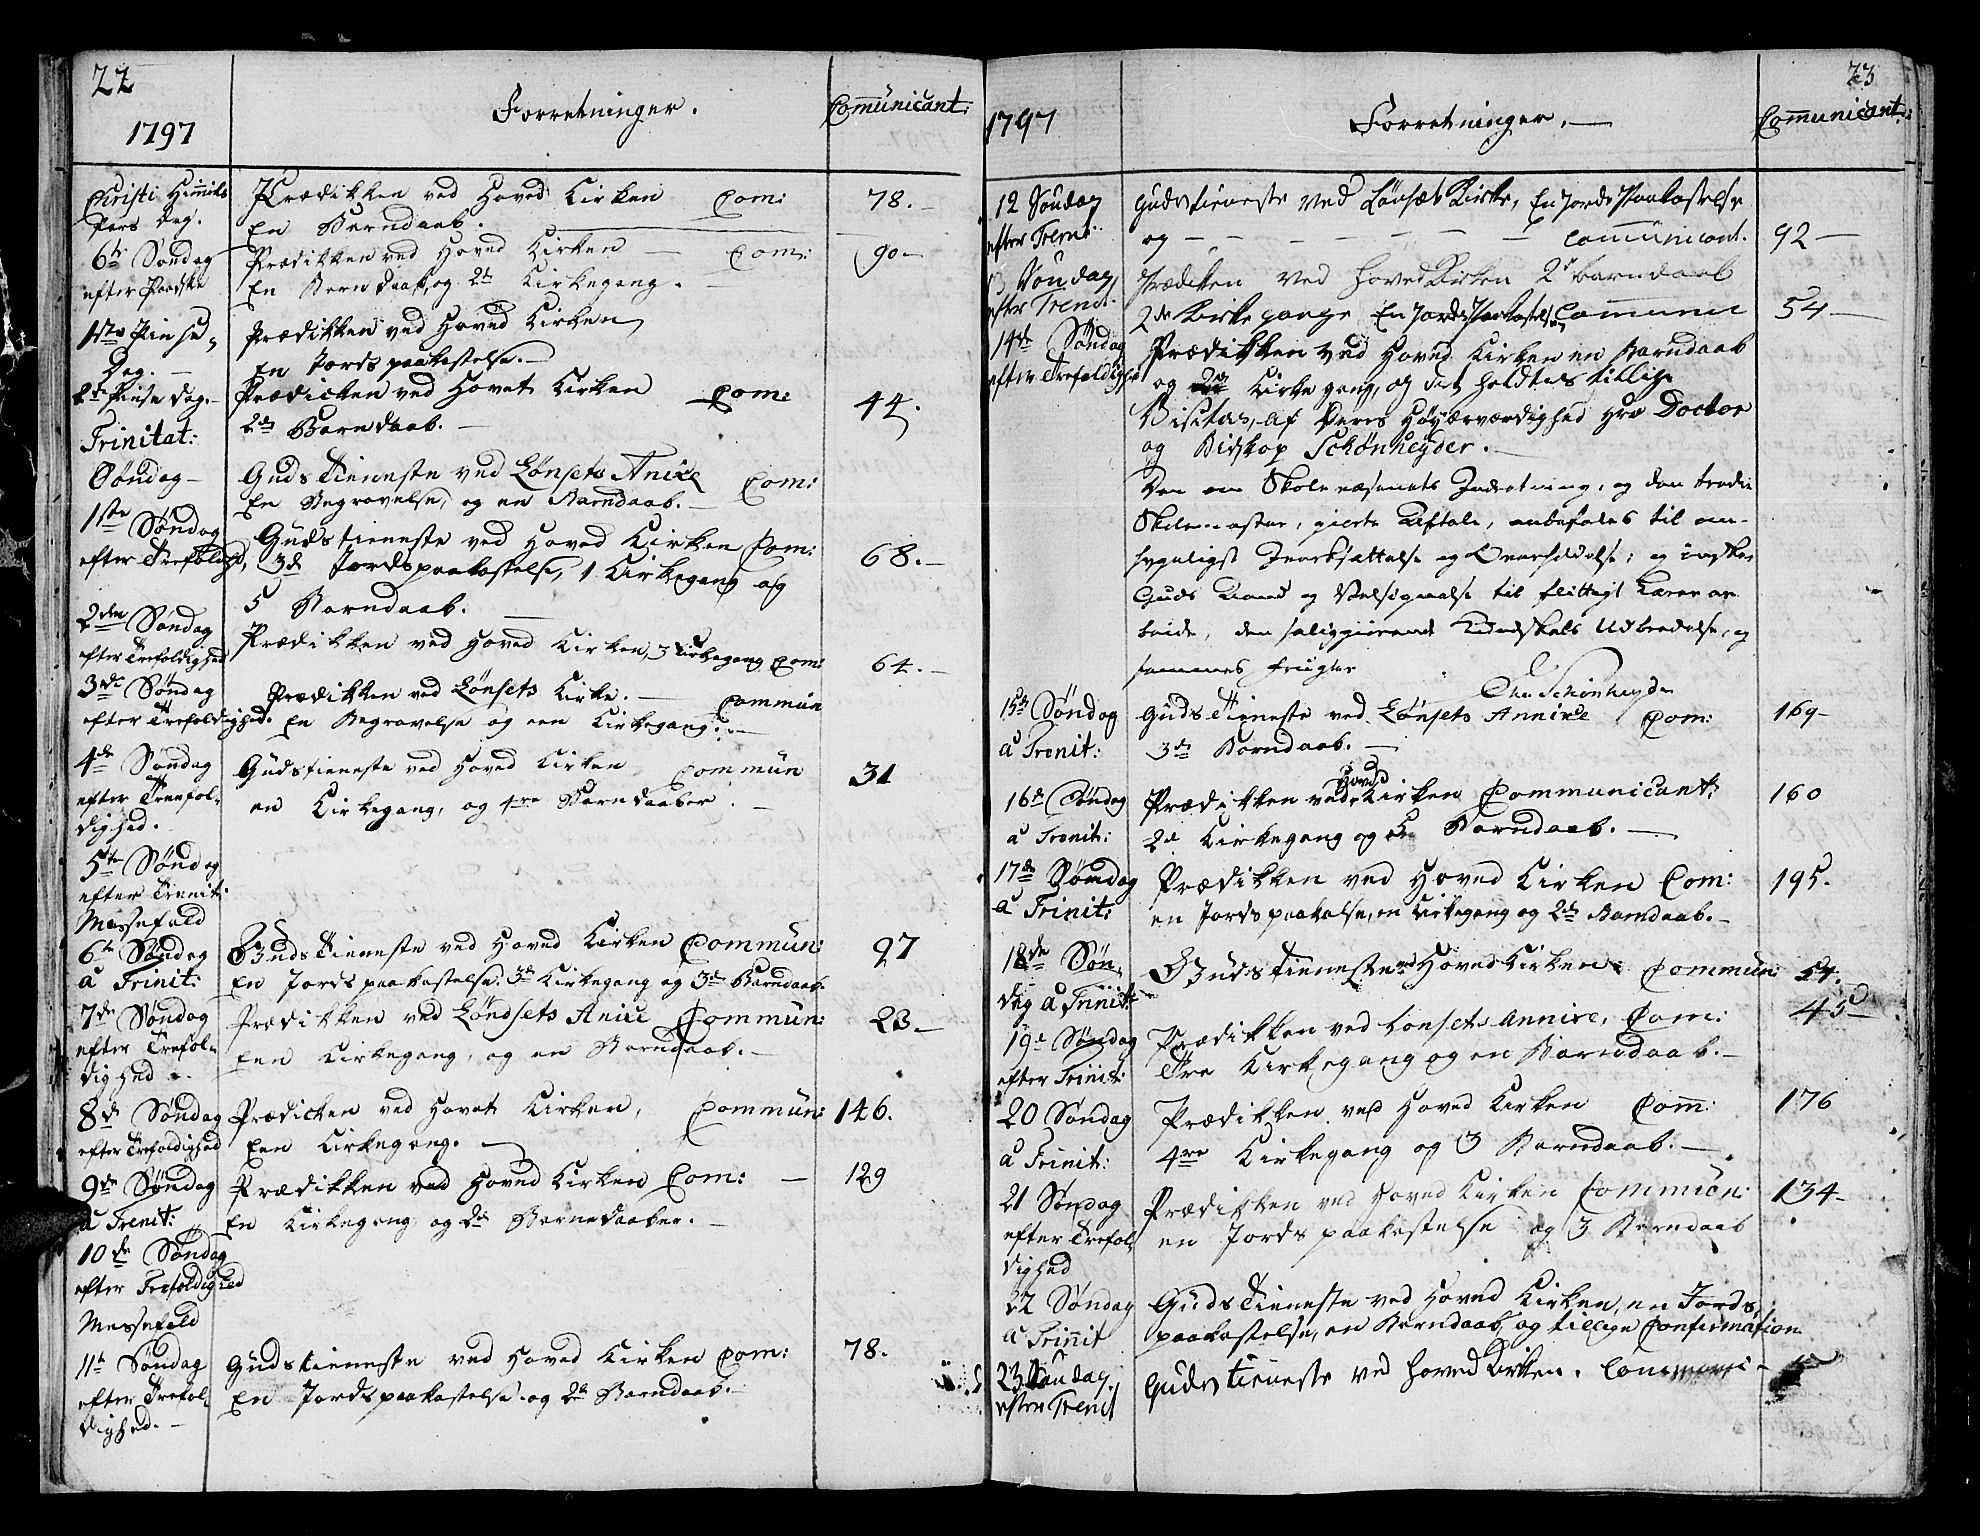 22
1797
Forretninger.
Communicant:
Christi Himmels
Fars Dag.
Prædikken ved Hoved Kirken Com: 78.-
En Barndaab.
6te Søndag
efter Paaske
Prædikken ved Hoved Kirken Com: 90-
En Barndaab, og 2de Kirkegang.
1ste Pinse
Dag.
Prædikken ved Hoved Kirken
En Jords paakastelse.-
2den Pinse Dag.-
Prædicken ved Hovet Kirken Com: 44.
2de Barndaab.-
Trinitat:
Søndag-
Guds Tieneste ved Lønsets Anixe Com:
En Begravelse, og en Barndaab.-
1ste Søndag
efter Trefoldighd,
Guds tieneste ved Hoved Kirken Com: 68.-
3de Jordspaakastelse, 1 Kirkegang og
5 Barndaab.
2den Søndag
efter Trefoldighed
Prædikken ved Hoved Kirken, 3 Kirkegang Com: 64.-
3die Søndag
efter Trefoldighed.
Prædikken ved Lønsets Kirke.- Commun
En Begravelse og een Kirkegang.-
4de Søndag
efter Treefol-
dighed.
Gudstieneste ved Hoved Kirken Commun 31
en Kirkegang, og 4re Barndaaber.-
5te Søndag
efter Treenit:
Messefald
6te Søndag
a Trinit:
Guds Tieneste ved Hoved Kirken Commun: 97
En Jords paakastelse. 3de Kirkegang og 3de Barndaab.
7de Søndag
efter Trefol-
dighed.
Prædikken ved Løndsets Anixe Commun: 23.-
Een Kirkegang, og en Barndaab.-
8de Søndag
efter Trefoldighed
Prædicken ved Hovet Kirken, Commun: 146.
Een Kirkegang.
9de Søndag
a Trenit:
Prædikken ved Hoved Kirken Com: - 129
En Kirkegang og 2de Barnedaaber.-
10de Søndag
efter Trefoldighed
Messefald
11te Søndag
efter Trefol-
dighed.-
Gudstieneste ved Hoved Kirken Com: 78.
En Jords paakastelse og 2de Barndaab.-
23
1797
Forretninger.-
Communicant:
12 Søndag
efter Trenit:
Gudstieneste ved Lønsæt Kirke, En Jords Paakastelse
og - - - - - - Communicant. 92-
Søndag
efter Trenit.
Prædiken ved Hoved Kirken 2de barndaab
2de Kirkegange En Jords Paakastelse Communic 54-
14de Søndag
efter Trefoldighd
Prædikken ved Hoved Kirken en Barndaab
og Kirkegang, og det holdtes tillige
Visitas, af Deres Høyærværdighed Hrr Doctor
og Bidskop Schønheyder.-
Den om Skolevæsenets Indretning, og den tredie
Skolemester, giorte Aftale, anbefales til om-
hyggeligst Iværksættelse og Overholdelse; og ønskes
Guds Aand og Velsignelse til flittigt Lærer ar-
beide, den saliggiørende Kundskabs Udbredelse, og
sammes Frugter
Chr. Schønheyder
15de Søndag
a Trenit:
Guds Tieneste ved Lønsets Annixe Com: 169-
3de Barndaab.-
16de Søndag
a Trenit:
Prædikken ved Hoved Kirken Communicant: 160
2de Kirkegang og Barndaab.-
17de Søndag
a Trinit:
Prædikken ved Hoved Kirken Com: 195.
en Jords paakalse, en Kirkegang og 2de Barndaab.-
18de Søn-
dag a Trinit:
Guds Tieneste ved Hoved Kirken Commun 54.
19de Søndag
efter Trinit:
Prædikken ved Lonsets Annixe, Com: 45-
Tre Kirkegang og en Barndaab.-
20 Søndag
a Trinit:
Prædikken ved Hoved Kirken Com: 176
4re Kirkegang og 3 Barndaab.-
21 Søndag
efter Trefol-
dighed
Prædikken ved Hoved Kirken Commun: 134-
en Jords paakastelse og 3 Barndaab
22 Søndag
a Trinit
Guds Tieneste ved Hoved Kirken, en Jords
paakastelse, en Barndaab og tillige Confirmation
23 Søndag
efter Trenit
Guds tieneste ved Hoved Kirken. Communi-